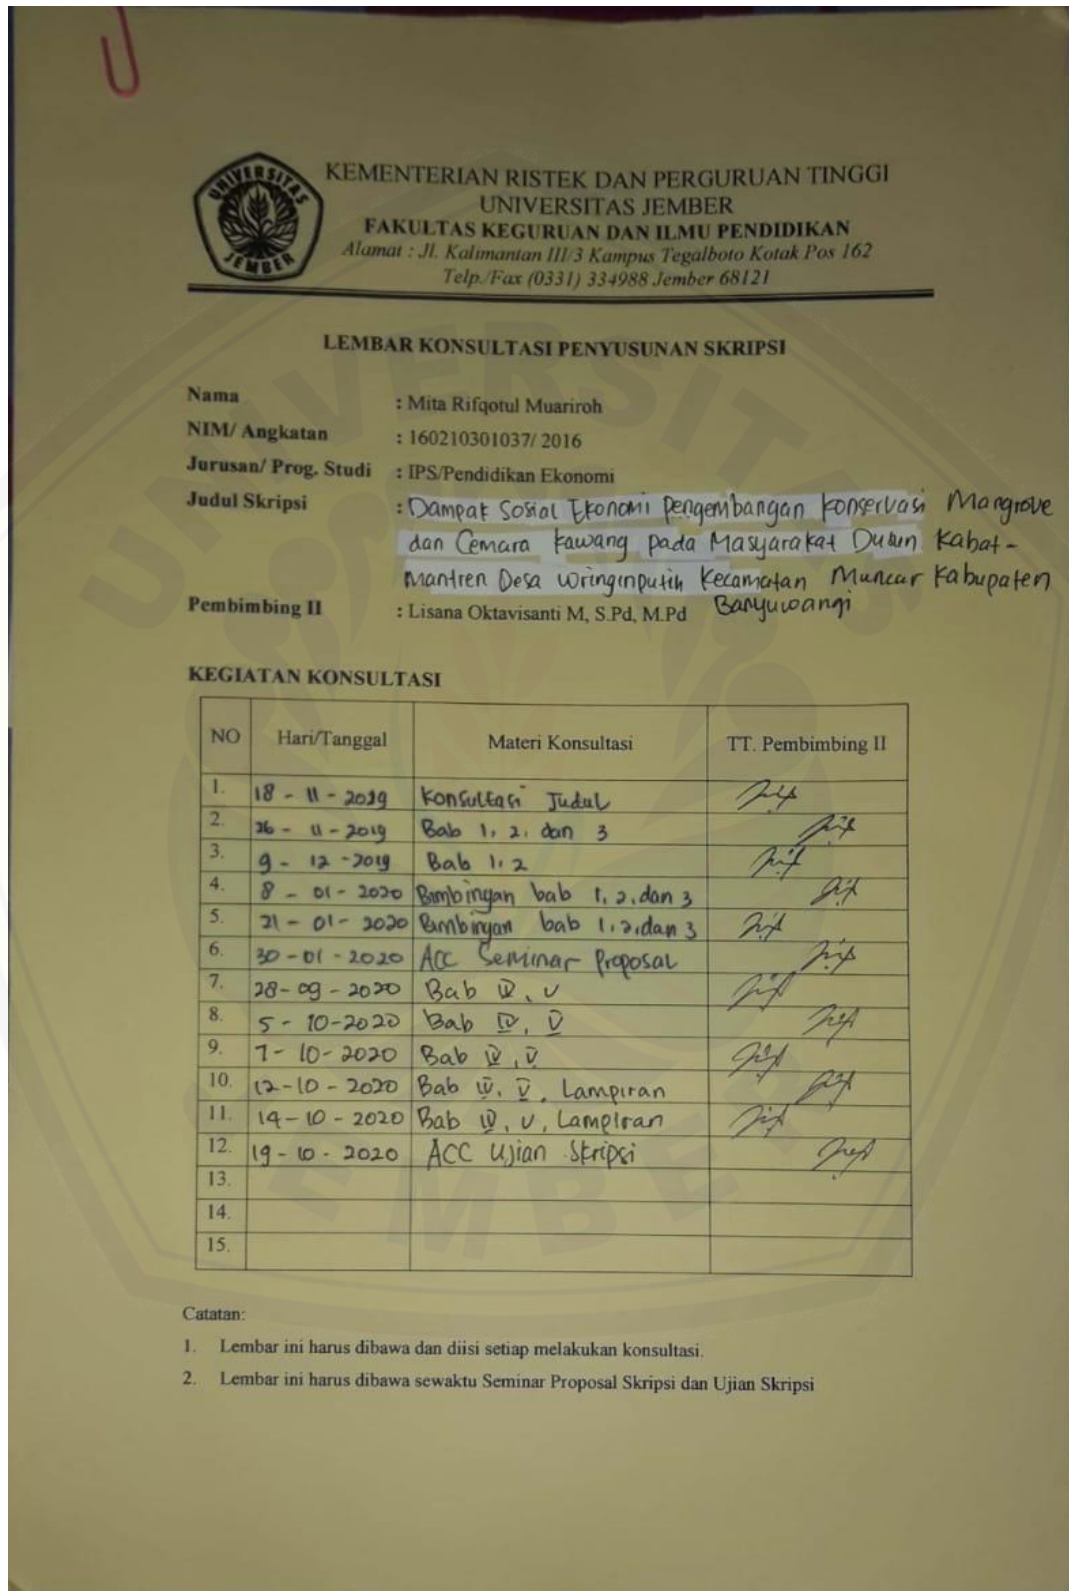 UNIVERSITAS
JEMBER
KEMENTERIAN RISTEK DAN PERGURUAN TINGGI
UNIVERSITAS JEMBER
FAKULTAS KEGURUAN DAN ILMU PENDIDIKAN
Alamat : Jl. Kalimantan III/3 Kampus Tegalboto Kotak Pos 162
Telp./Fax (0331) 334988 Jember 68121
LEMBAR KONSULTASI PENYUSUNAN SKRIPSI
Nama : Mita Rifqotul Muariroh
NIM/ Angkatan : 160210301037/ 2016
Jurusan/ Prog. Studi : IPS/Pendidikan Ekonomi
Judul Skripsi : Dampak Sosial Ekonomi Pengembangan Konservasi Mangrove
dan Cemara Kawang pada Masyarakat Dusun Kabat-
Mantren Desa Wringinputih Kecamatan Muncar Kabupaten
Banyuwangi
Pembimbing II : Lisana Oktavisanti M, S.Pd, M.Pd
KEGIATAN KONSULTASI
NO Hari/Tanggal Materi Konsultasi TT. Pembimbing II
1. 18 - 11 - 2019 Konsultasi Judul
2. 26 - 11 - 2019 Bab 1, 2, dan 3
3. 9 - 12 - 2019 Bab 1, 2
4. 8 - 01 - 2020 Bimbingan bab 1, 2, dan 3
5. 21 - 01 - 2020 Bimbingan bab 1, 2, dan 3
6. 30 - 01 - 2020 ACC Seminar Proposal
7. 28 - 09 - 2020 Bab IV, V
8. 5 - 10 - 2020 Bab IV, V
9. 7 - 10 - 2020 Bab IV, V
10. 12 - 10 - 2020 Bab IV, V, Lampiran
11. 14 - 10 - 2020 Bab IV, V, Lampiran
12. 19 - 10 - 2020 ACC Ujian Skripsi
13.
14.
15.
Catatan:
1. Lembar ini harus dibawa dan diisi setiap melakukan konsultasi.
2. Lembar ini harus dibawa sewaktu Seminar Proposal Skripsi dan Ujian Skripsi